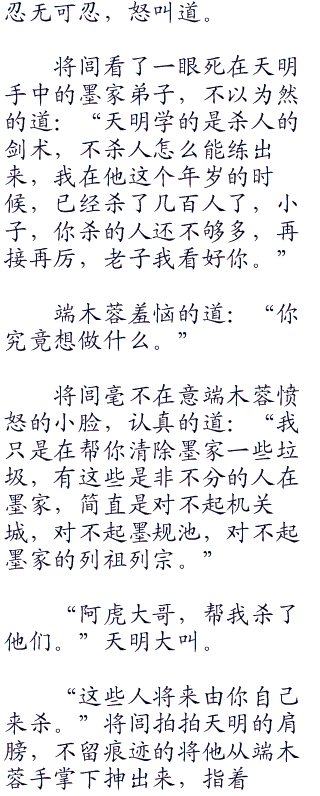 忍无可忍，怒叫道。
将闾看了一眼死在天明
手中的墨家弟子，不以为然
的道：“天明学的是杀人的
剑术，不杀人怎么能练出
来，我在他这个年岁的时
候，已经杀了几百人了，小
子，你杀的人还不够多，再
接再厉，老子我看好你。”
端木蓉羞恼的道：“你
究竟想做什么。”
将闾毫不在意端木蓉愤
怒的小脸，认真的道：“我
只是在帮你清除墨家一些垃
圾，有这些是非不分的人在
墨家，简直是对不起机关
城，对不起墨规池，对不起
墨家的列祖列宗。”
“阿虎大哥，帮我杀了
他们。”天明大叫。
“这些人将来由你自己
来杀。”将闾拍拍天明的肩
膀，不留痕迹的将他从端木
蓉手掌下抻出来，指着